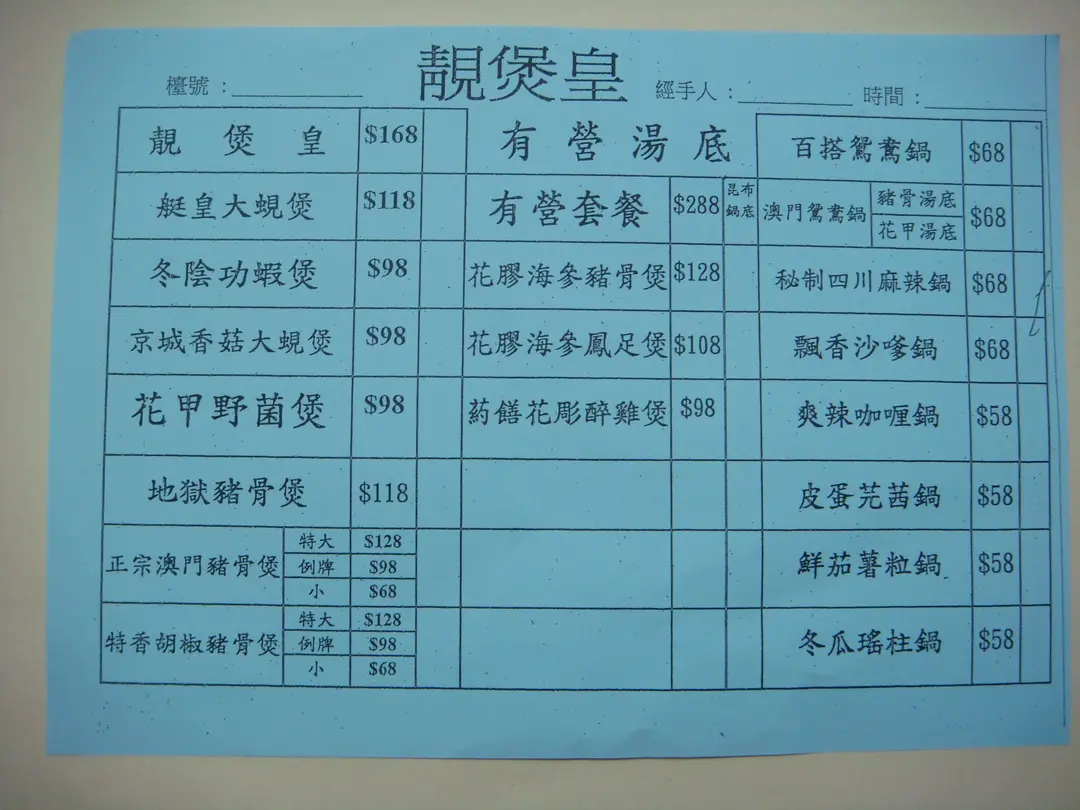 靚煲皇
檯號：
經手人：
時間：
靚煲皇 $168
艇皇大蜆煲 $118
冬陰功蝦煲 $98
京城香菇大蜆煲 $98
花甲野菌煲 $98
地獄豬骨煲 $118
正宗澳門豬骨煲
特大 $128
例牌 $98
小 $68
特香胡椒豬骨煲
特大 $128
例牌 $98
小 $68
有營湯底
有營套餐 $288 昆布
鍋底
花膠海參豬骨煲 $128
花膠海參鳳足煲 $108
葯饍花彫醉雞煲 $98
百搭鴛鴦鍋 $68
澳門鴛鴦鍋
豬骨湯底
花甲湯底
$68
秘制四川麻辣鍋 $68
飄香沙嗲鍋 $68
爽辣咖喱鍋 $58
皮蛋芫茜鍋 $58
鮮茄薯粒鍋 $58
冬瓜瑤柱鍋 $58